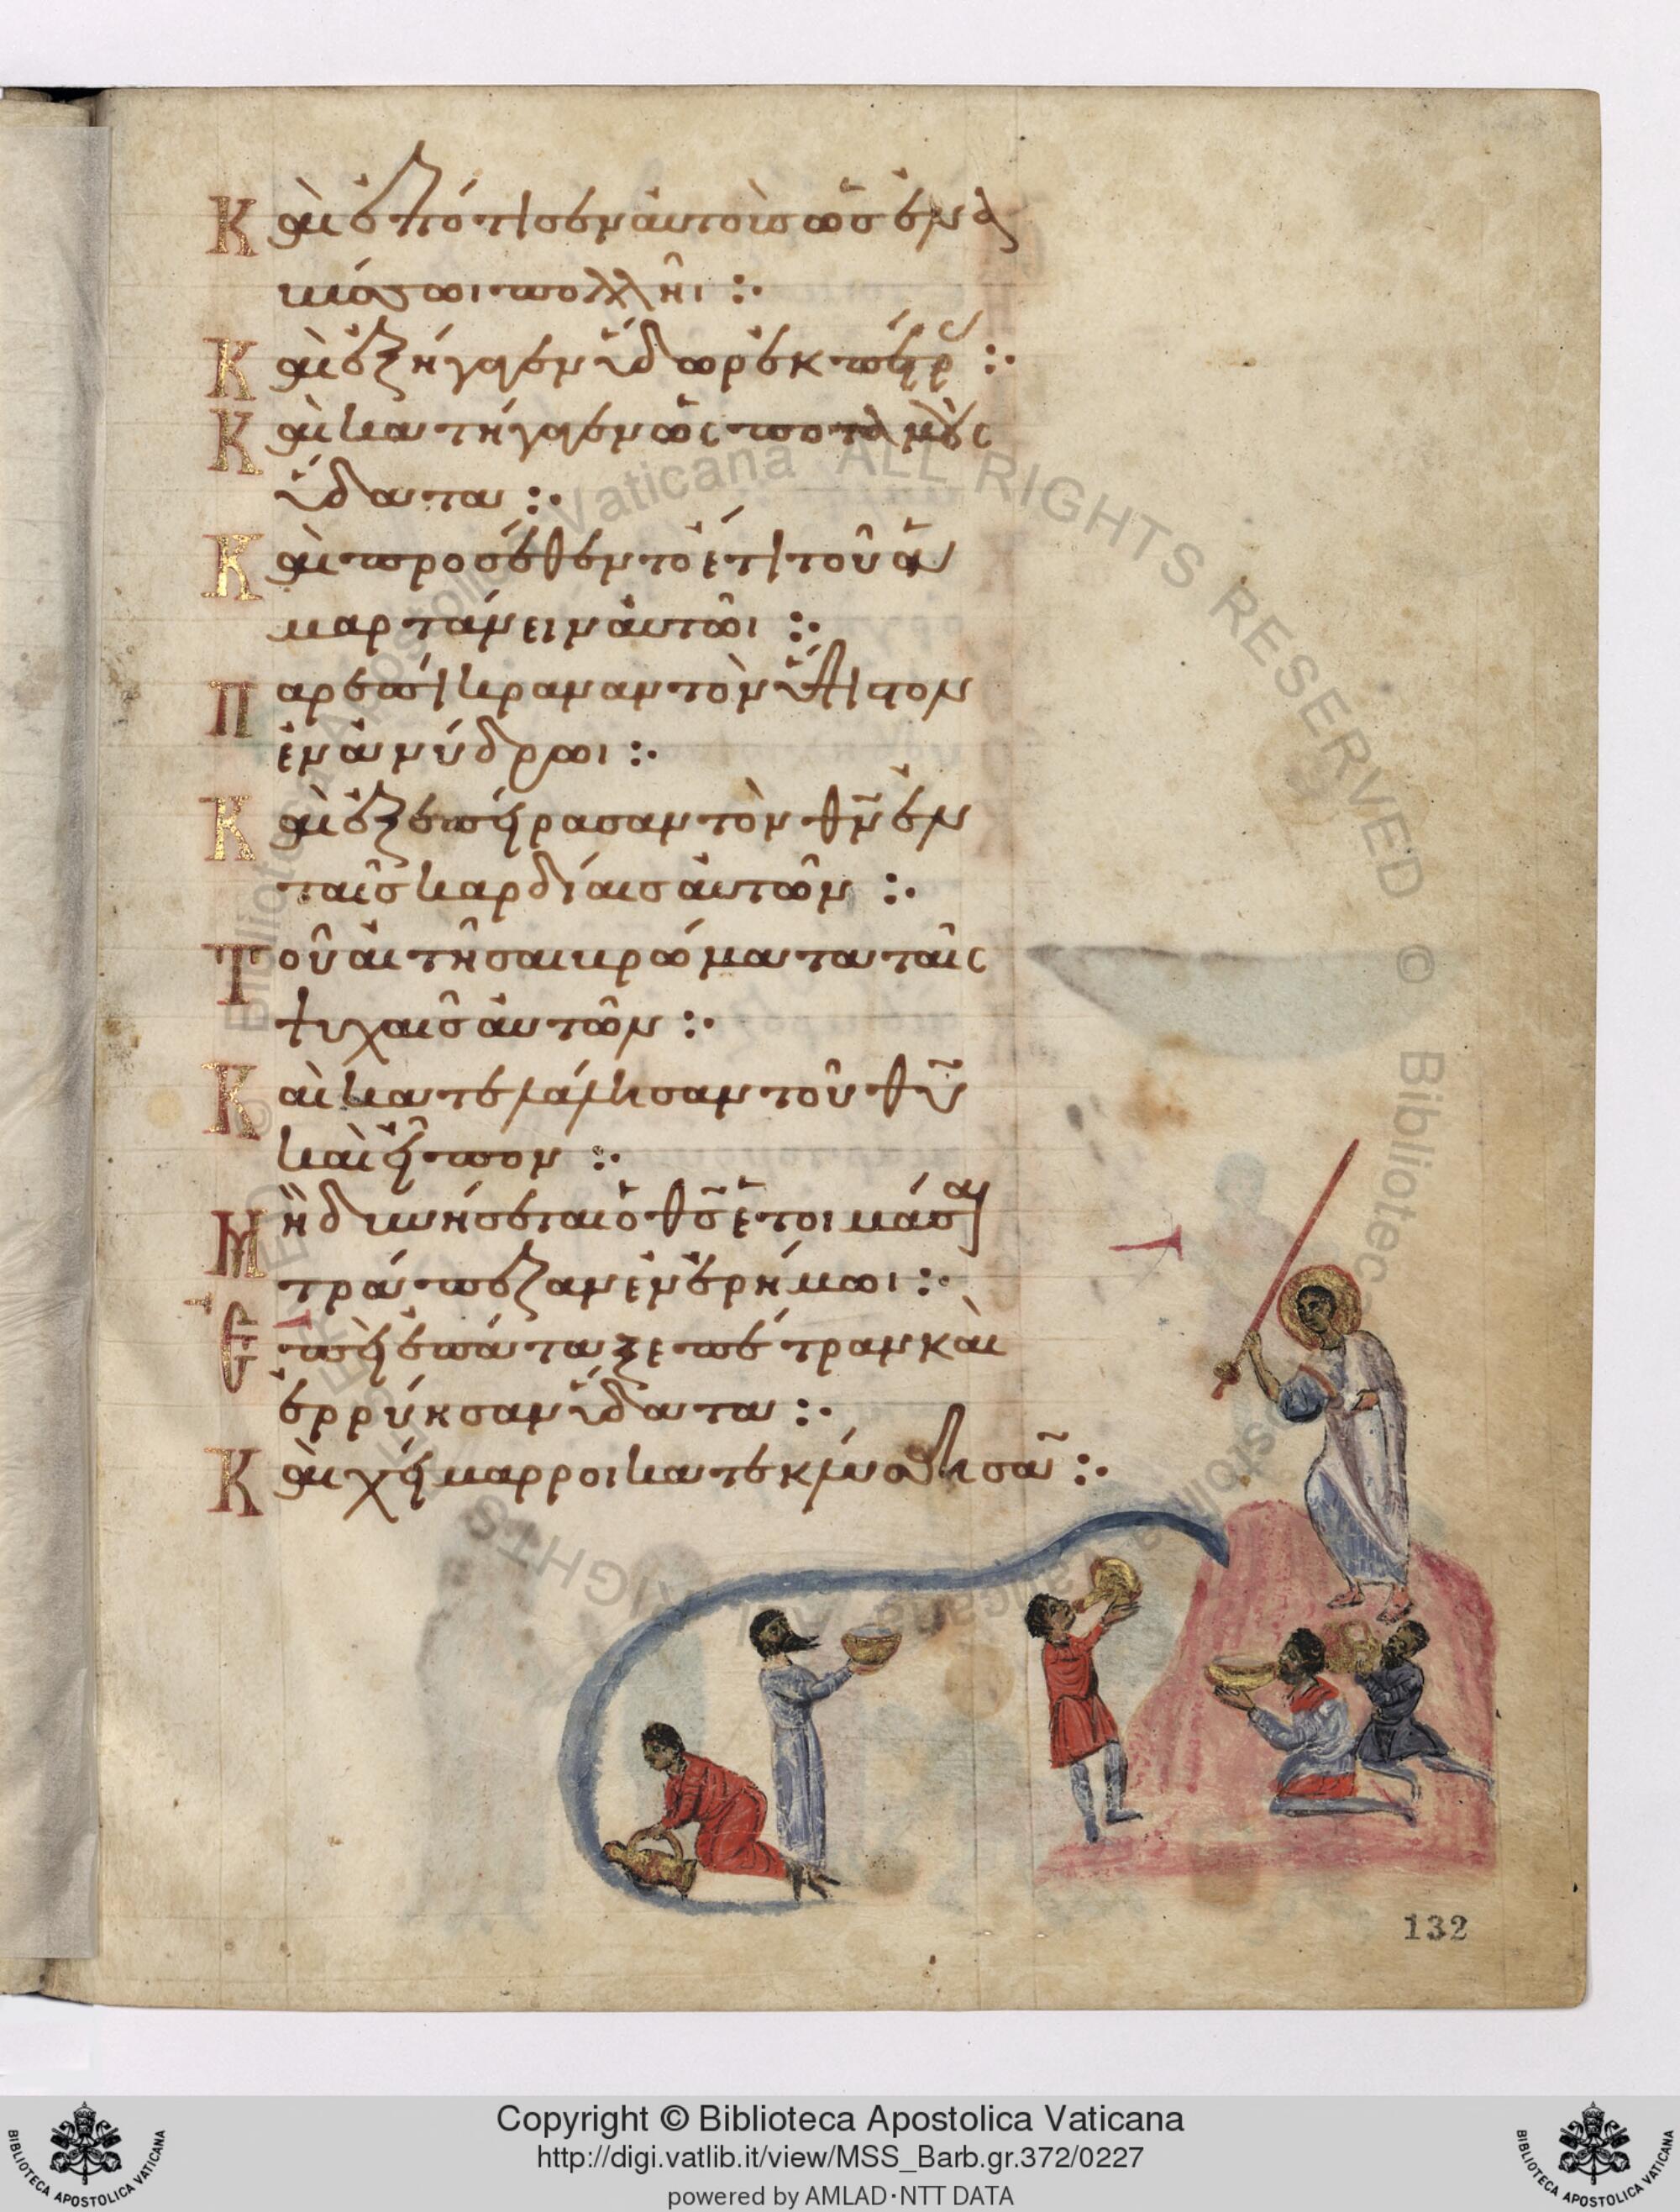 Καὶ ἐπότισεν αὐτοὺς ὡς ἐν ἀ
βύσσωι πολλῆι :·
Καὶ ἐξήγαγεν ὕδωρ ἐκ πέτρ :·
Καὶ κατήγαγεν ὡς ποταμοὺς
ὕδατα :·
Καὶ προσέθεντο ἔτι τοῦ ἁ
μαρτάνειν αὐτῶι :·
Παρεπίκραναν τὸν ὕψιστον
ἐν ἀνύδρωι :·
Καὶ ἐξεπείρασαν τὸν θν ἐν
ταῖς καρδίαις αὐτῶν :·
Τοῦ αἰτῆσαι βρώματα ταῖς
ψυχαῖς αὐτῶν :·
Καὶ κατελάλησαν τοῦ θυ
καὶ εἶπον :·
Μὴ δυνήσεται ὁ θς ἑτοιμάσαι
τράπεζαν ἐν ἐρήμωι :·
Ἐπεὶ ἐπάταξε πέτραν καὶ
ἐρρύησαν ὕδατα :·
Καὶ χείμαρροι κατεκλύσθησα :·
132
Copyright © Biblioteca Apostolica Vaticana
http://digi.vatlib.it/view/MSS_Barb.gr.372/0227
powered by AMLAD·NTT DATA
BIBLIOTECA APOSTOLICA VATICANA
BIBLIOTECA APOSTOLICA VATICANA